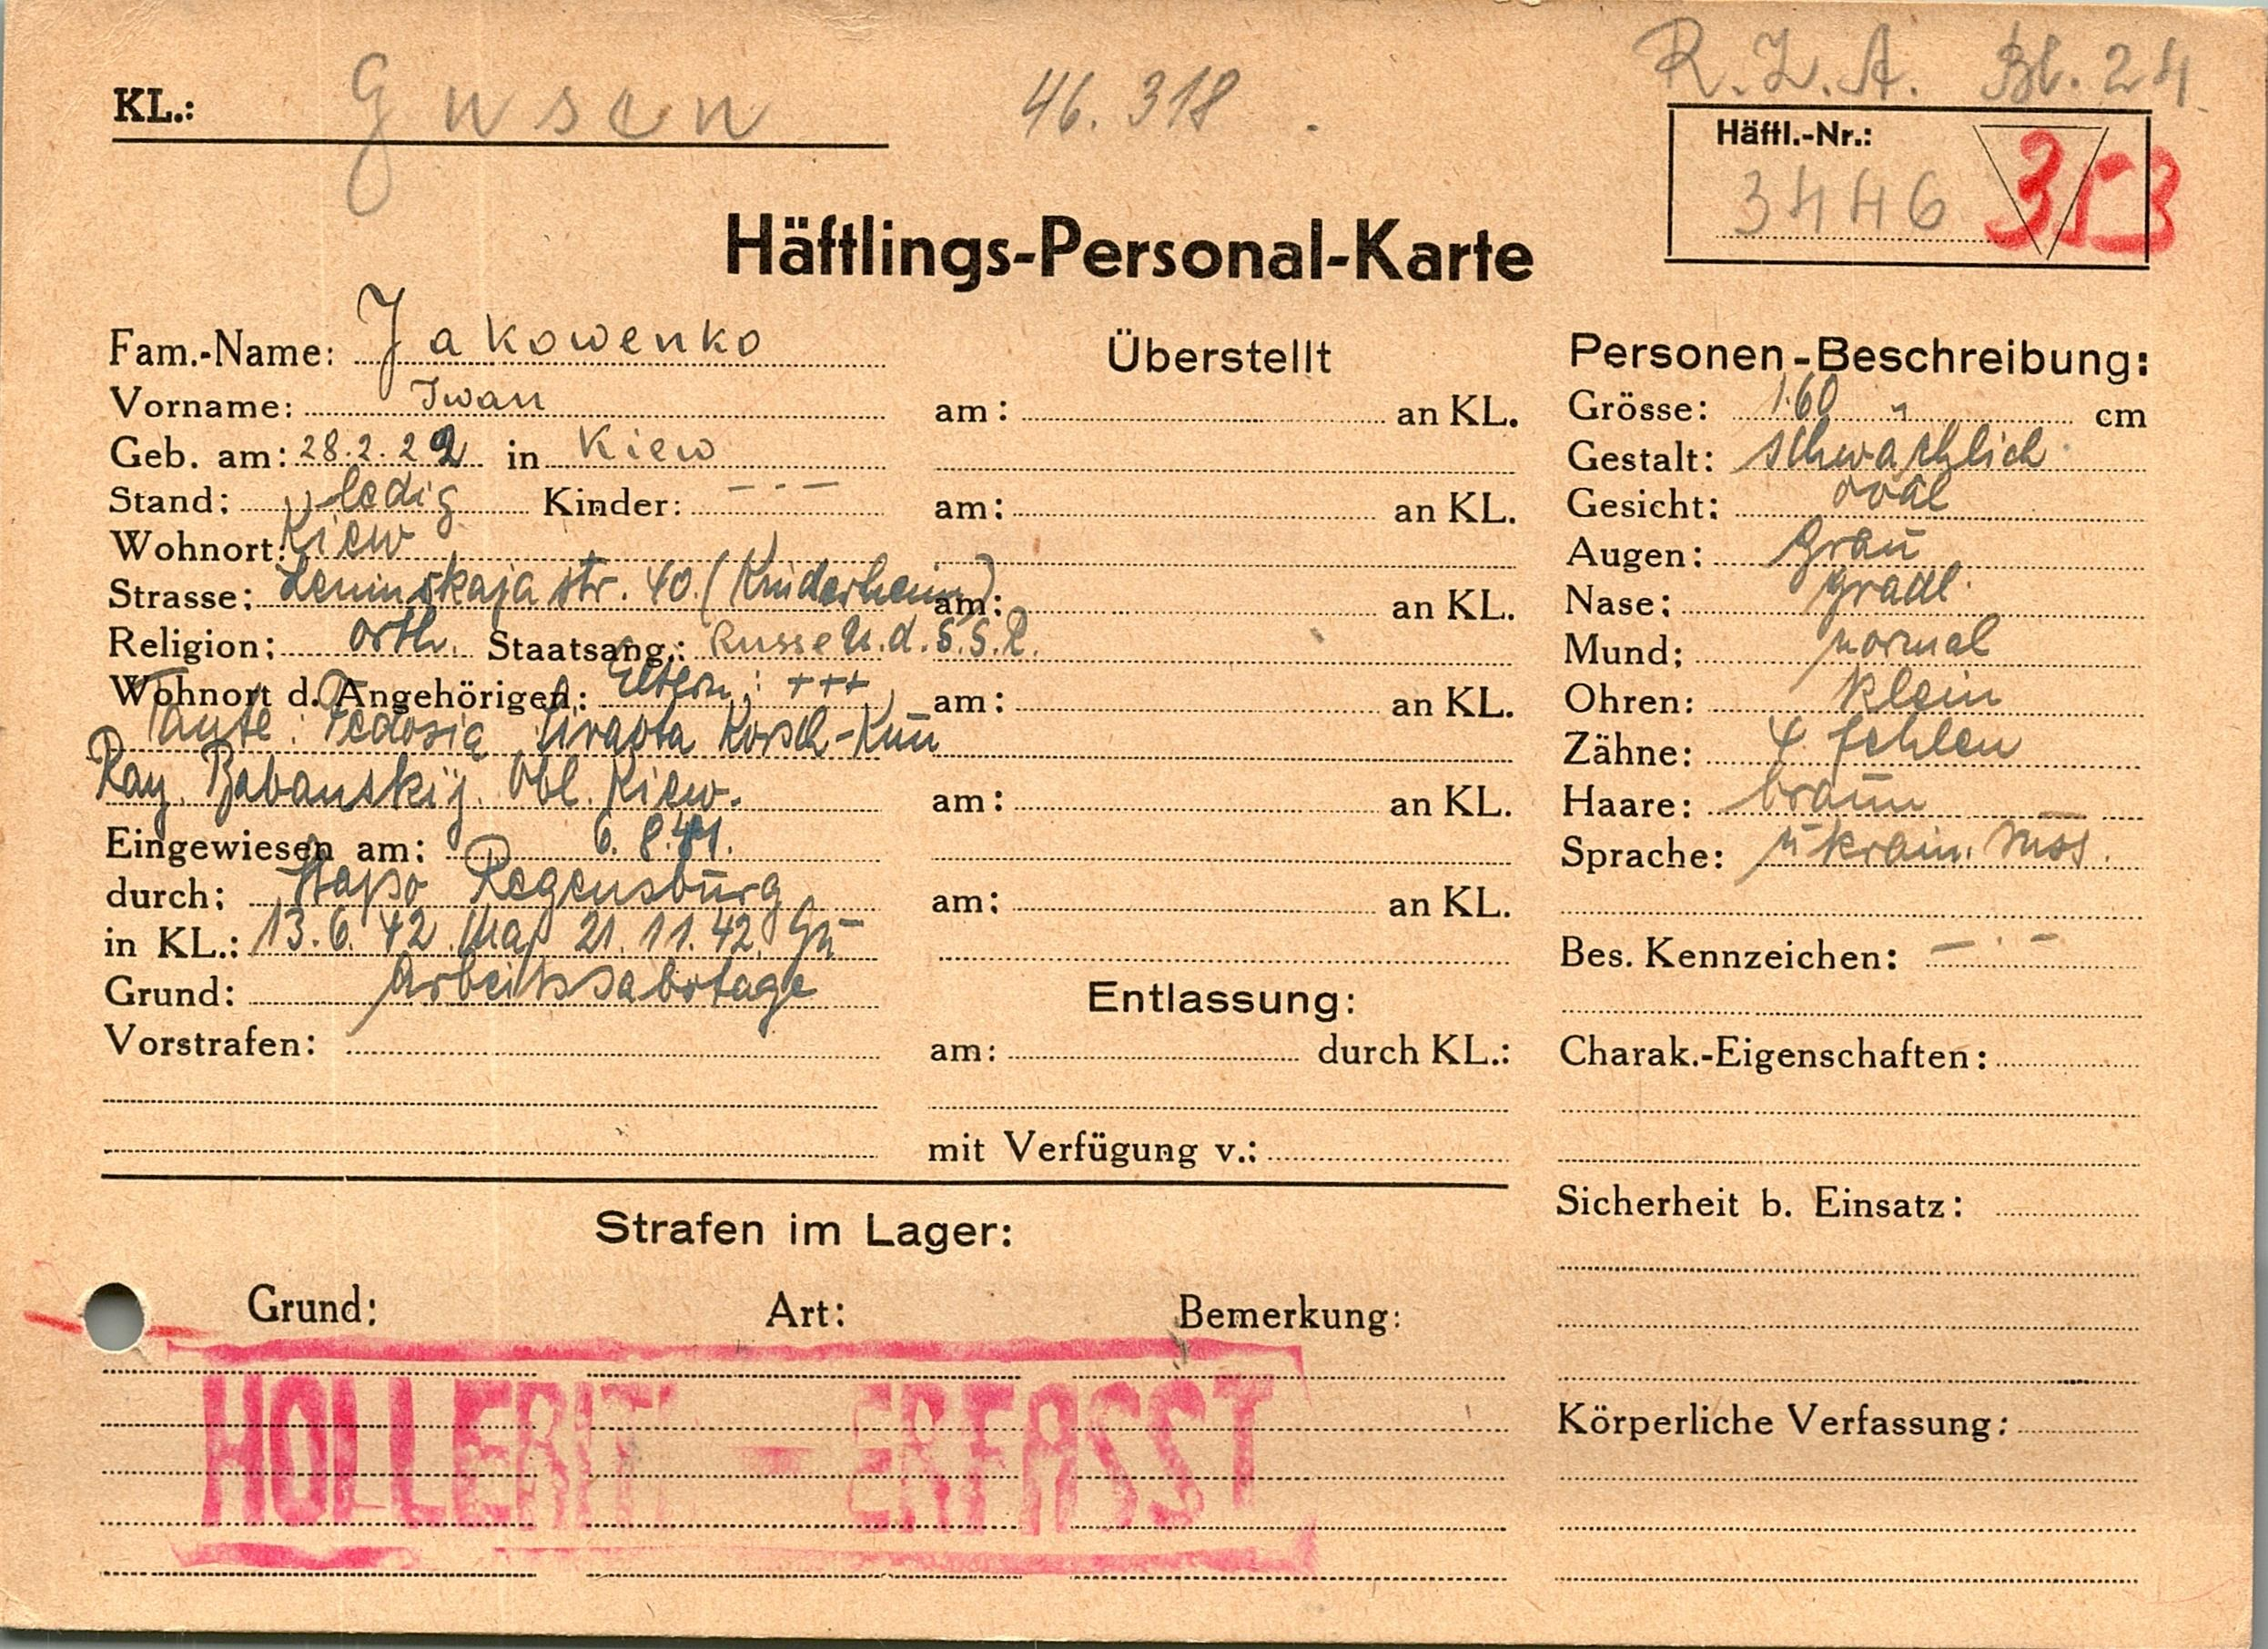 R.Z.A. Bl. 24
KL.: Gusen 46.318.
Häftl.-Nr.:
3446 353
Häftlings-Personal-Karte
Fam.-Name: Jakowenko
Vorname: Iwan
Geb. am: 28.2.22 in Kiew
Stand: ledig Kinder: - . -
Wohnort: Kiew
Strasse: Leninskaja str. 40. (Kinderheim)
Religion: orth. Staatsang.: Russe U.d.S.S.R.
Wohnort d. Angehörigen: Eltern: +++
Tante: Fedosia Korsch-Kuu
Ray. Babanskij. Obl. Kiew.
Eingewiesen am: 6.8.41.
durch: Stapo Regensburg
in KL.: 13.6.42 21.11.42. Gu-
Grund: Arbeitssabotage
Vorstrafen:
Überstellt
am: an KL.
am: an KL.
am: an KL.
am: an KL.
am: an KL.
am: an KL.
Entlassung:
am: durch KL.:
mit Verfügung v.:
Personen-Beschreibung:
Grösse: 1.60 cm
Gestalt: schwächlich
Gesicht: oval
Augen: grau
Nase: gradl.
Mund: normal
Ohren: klein
Zähne: 4 fehlen
Haare: braun
Sprache: ukrain. russ.
Bes. Kennzeichen: - . -
Charak.-Eigenschaften:
Sicherheit b. Einsatz:
Körperliche Verfassung:
Strafen im Lager:
Grund: Art: Bemerkung:
HOLLERIT - ERFASST